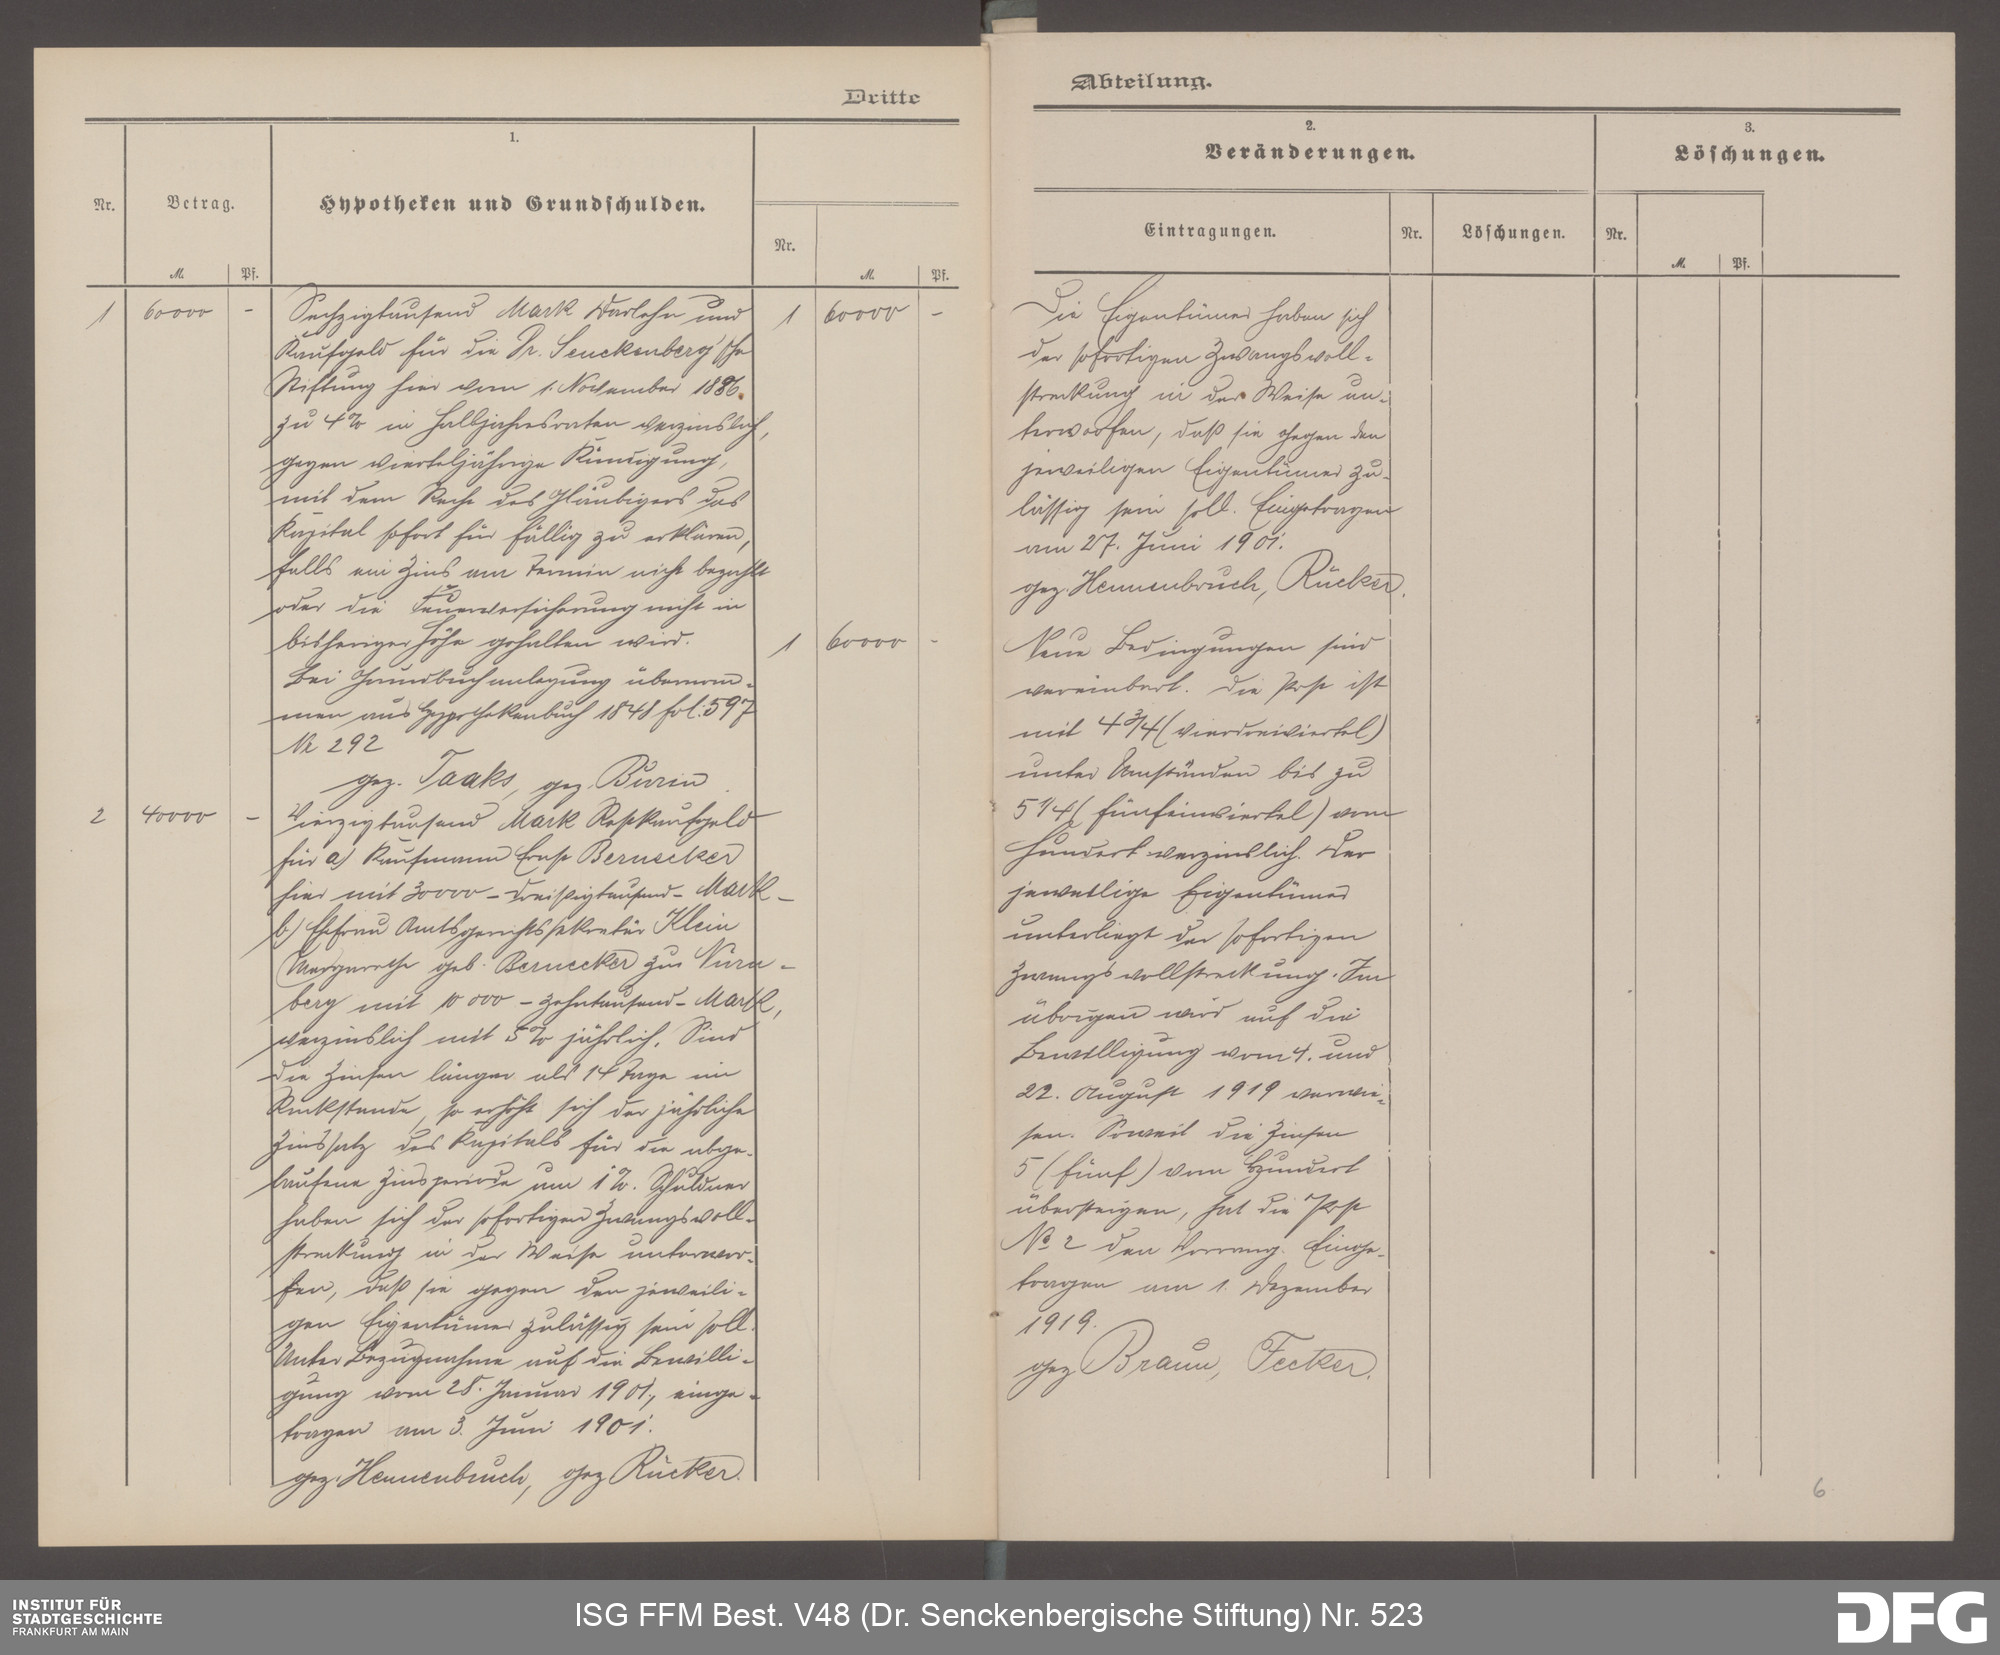 Dritte
1.
Nr.
Betrag.
Hypotheken und Grundschulden.
Nr.
M.
Pf.
M.
Pf.
1 60000 –
Sechzigtausend Mark Darlehn und
Kaufgeld für die Dr. Senckenberg'sche
Stiftung hier vom 1. November 1886.
zu 4% in Halbjahresraten verzinslich,
gegen vierteljährige Kündigung,
mit dem Recht des Gläubigers das
Kapital sofort für fällig zu erklären,
falls ein Zins am Termin nicht bezahlt
oder die Feuerversicherung nicht in
bisheriger Höhe gehalten wird.
Bei Grundbuchanlegung übernom-
men aus Hypothekenbuch 1848 fol: 597
Nr 292
gez. Taaks, gez. Burin
1 60000 –
1 60000 –
2 40000 –
Vierzigtausend Mark Restkaufgeld
für a) Kaufmann Ernst Bernecker
hier mit 30000 – dreißigtausend – Mark –
b) Ehefrau Amtsgerichtssekretär Klein
Margarethe geb. Bernecker zu Nürn-
berg mit 10 000 – zehntausend – Mark,
verzinslich mit 5% jährlich. Sind
die Zinsen länger als 14 Tage im
Rückstande, so erhöht sich der jährliche
Zinssatz des Kapitals für die abge-
laufene Zinsperiode um 1%. Schuldner
haben sich der sofortigen Zwangsvoll-
streckung in der Weise unterwor-
fen, daß sie gegen den jeweili-
gen Eigentümer zulässig sein soll.
Unter Bezugnahme auf die Bewilli-
gung vom 28. Januar 1901, einge-
tragen am 3. Juni 1901.
gez. Hennenbruch, gez Rücker.
Abteilung.
2.
Veränderungen.
3.
Löschungen.
Eintragungen.
Nr.
Löschungen.
Nr.
M.
Pf.
Die Eigentümer haben sich
der sofortigen Zwangsvoll-
streckung in der Weise un-
terworfen, daß sie gegen den
jeweiligen Eigentümer zu-
lässig sein soll. Eingetragen
am 27. Juni 1901.
gez. Hennenbruch, Rücker.
Neue Bedingungen sind
vereinbart. Die Post ist
mit 4 3/4 (vierdreiviertel)
unter Umständen bis zu
5 1/4 (fünfeinviertel) vom
Hundert verzinslich. Der
jeweilige Eigentümer
unterliegt der sofortigen
Zwangsvollstreckung. Im
übrigen wird auf die
Bewilligung vom 4. und
22. August 1919 verwie-
sen. Soweit die Zinsen
5 (fünf) vom Hundert
übersteigen, hat die Post
No 2 den Vorrang. Einge-
tragen am 1. Dezember
1919.
gez Braun, Fecker.
6
INSTITUT FÜR
STADTGESCHICHTE
FRANKFURT AM MAIN
ISG FFM Best. V48 (Dr. Senckenbergische Stiftung) Nr. 523
DFG